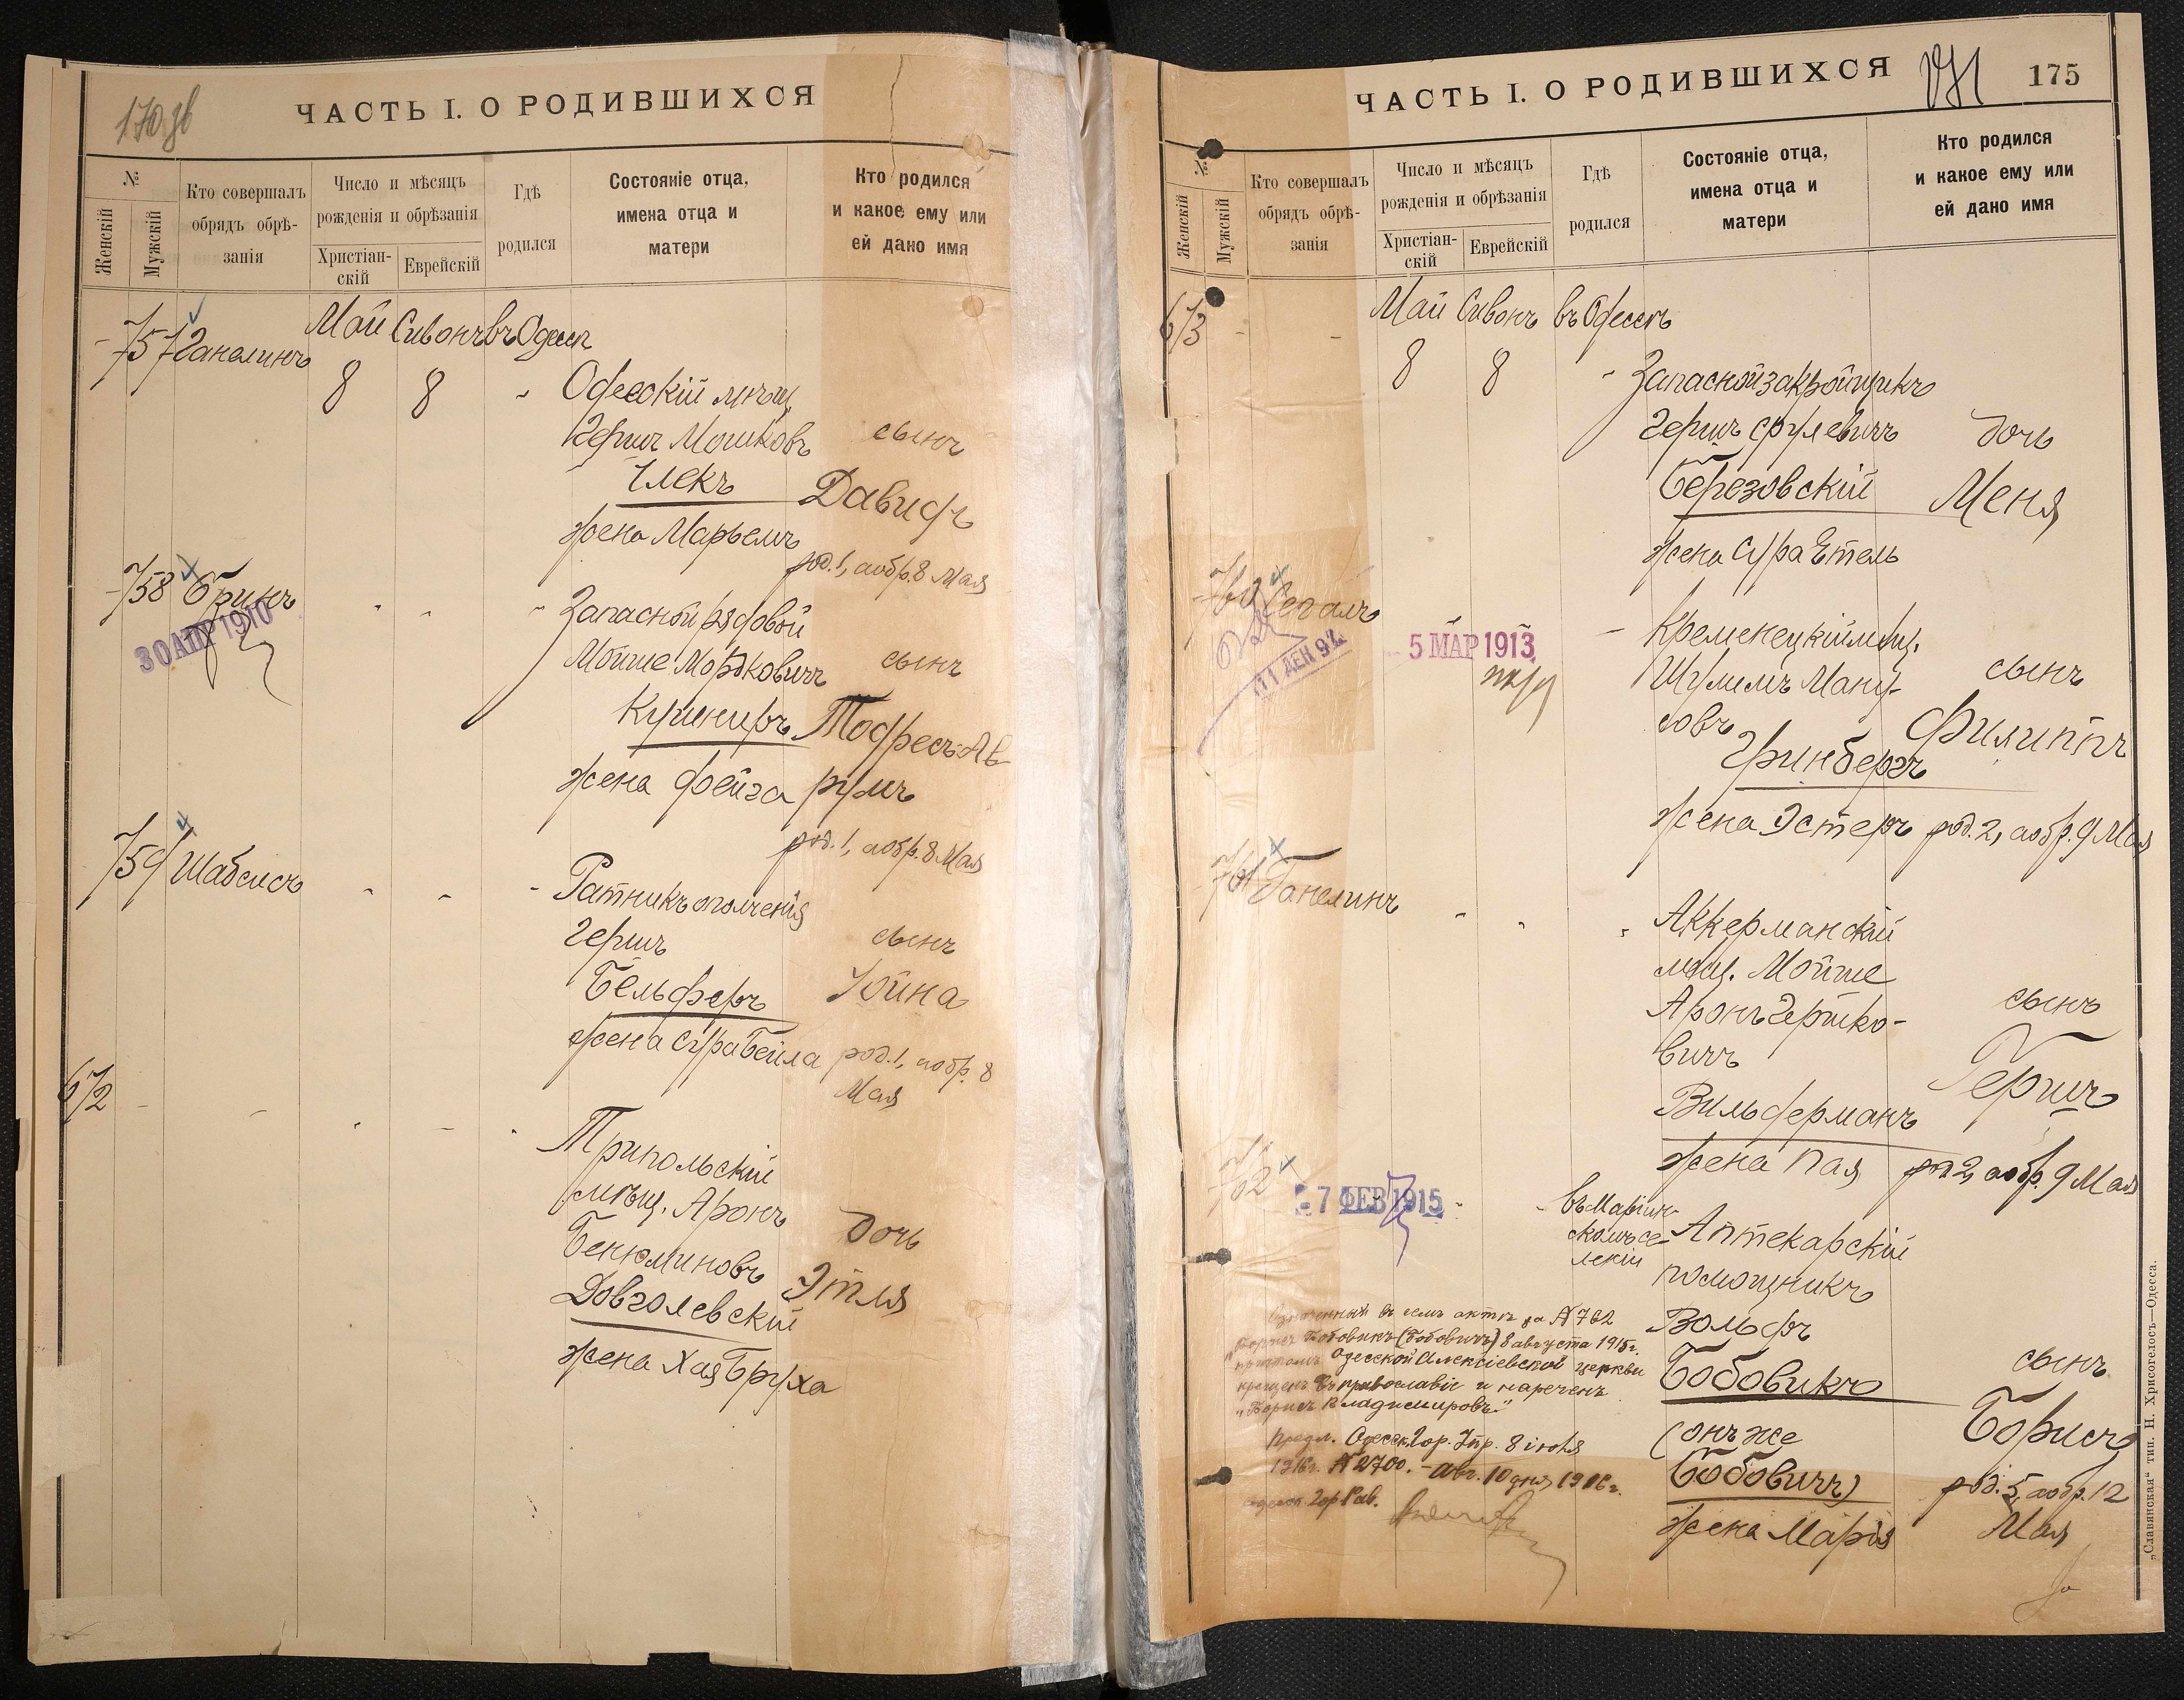 170 об
ЧАСТЬ I. О РОДИВШИХСЯ
№
Женскій
Мужскій
Кто совершалъ
обрядъ обрѣ-
занія
Число и мѣсяцъ
рожденія и обрѣзанія
Христіан-
скій
Еврейскій
Гдѣ
родился
Состояніе отца,
имена отца и
матери
Кто родился
и какое ему или
ей дано имя
- 757 Ганелинъ
Май Сивонъ въ Одессѣ
8 8 " Одесскій мѣщ.
Гершъ Мошковъ сынъ
Члекъ Давидъ
жена Марьемъ
род. 1, а обр. 8 Мая
- 758 Бринъ " " " Запасной рядовой
30 АПР 1910
Мойше Мордковичъ сынъ
Кушниръ Тодресъ-Ав-
жена Фейга румъ
род. 1, а обр. 8 Мая
759 Шабсисъ " " " Ратникъ ополченія
Гершъ сынъ
Бельферъ Іойна
жена Сура Бейла род. 1, а обр. 8
Мая
672 - - " - "
Трипольскій
мѣщ. Аронъ
Бенюминовъ дочь
Довголевскій Этля
жена Хая Бруха
ЧАСТЬ I. О РОДИВШИХСЯ
171 175
№
Женскій
Мужскій
Кто совершалъ
обрядъ обрѣ-
занія
Число и мѣсяцъ
рожденія и обрѣзанія
Христіан-
скій
Еврейскій
Гдѣ
родился
Состояніе отца,
имена отца и
матери
Кто родился
и какое ему или
ей дано имя
673 - -
Май Сивонъ въ Одессѣ
8 8 " Запасной закройщикъ
Гершъ Срулевичъ дочь
Березовскій Меня
жена Сура Этель
- 760 Сегалъ
5 МАР 1913
Кременецкій мѣщ.
Шулимъ Ману- сынъ
совъ Филиппъ
Гринбергъ
жена Эстеръ род. 2, а обр. 9 Мая
- 761 Ганелинъ " " "
Аккерманскій
мѣщ. Мойше
Аронъ Гершко- сынъ
вичъ
Гершъ
Вильферманъ
жена Пая род. 2, а обр. 9 Мая
762
- 7 ФЕВ 1915
въ Маріин-
скомъ се-
леніи
Аптекарскій
помощникъ
Вольфъ
Бобовикъ сынъ
(онъ же Борисъ
Бобовичъ) род. 5, а обр. 12
жена Марія Мая
въ семъ актѣ за № 762
Борисъ Бобовикъ (Бобовичъ) 8 августа 1915 г.
причтомъ Одесской Алексіевской церкви
крещенъ въ православіе и нареченъ
„Борисъ Владимировъ."
Предл. Одесск. Гор. Упр. 8 іюля
1916 г. № 2700. - Авг. 10 дня 1916 г.
Одесск. Гор. Рав.
„Славянская" тип. Н. Хрисогелосъ—Одесса.